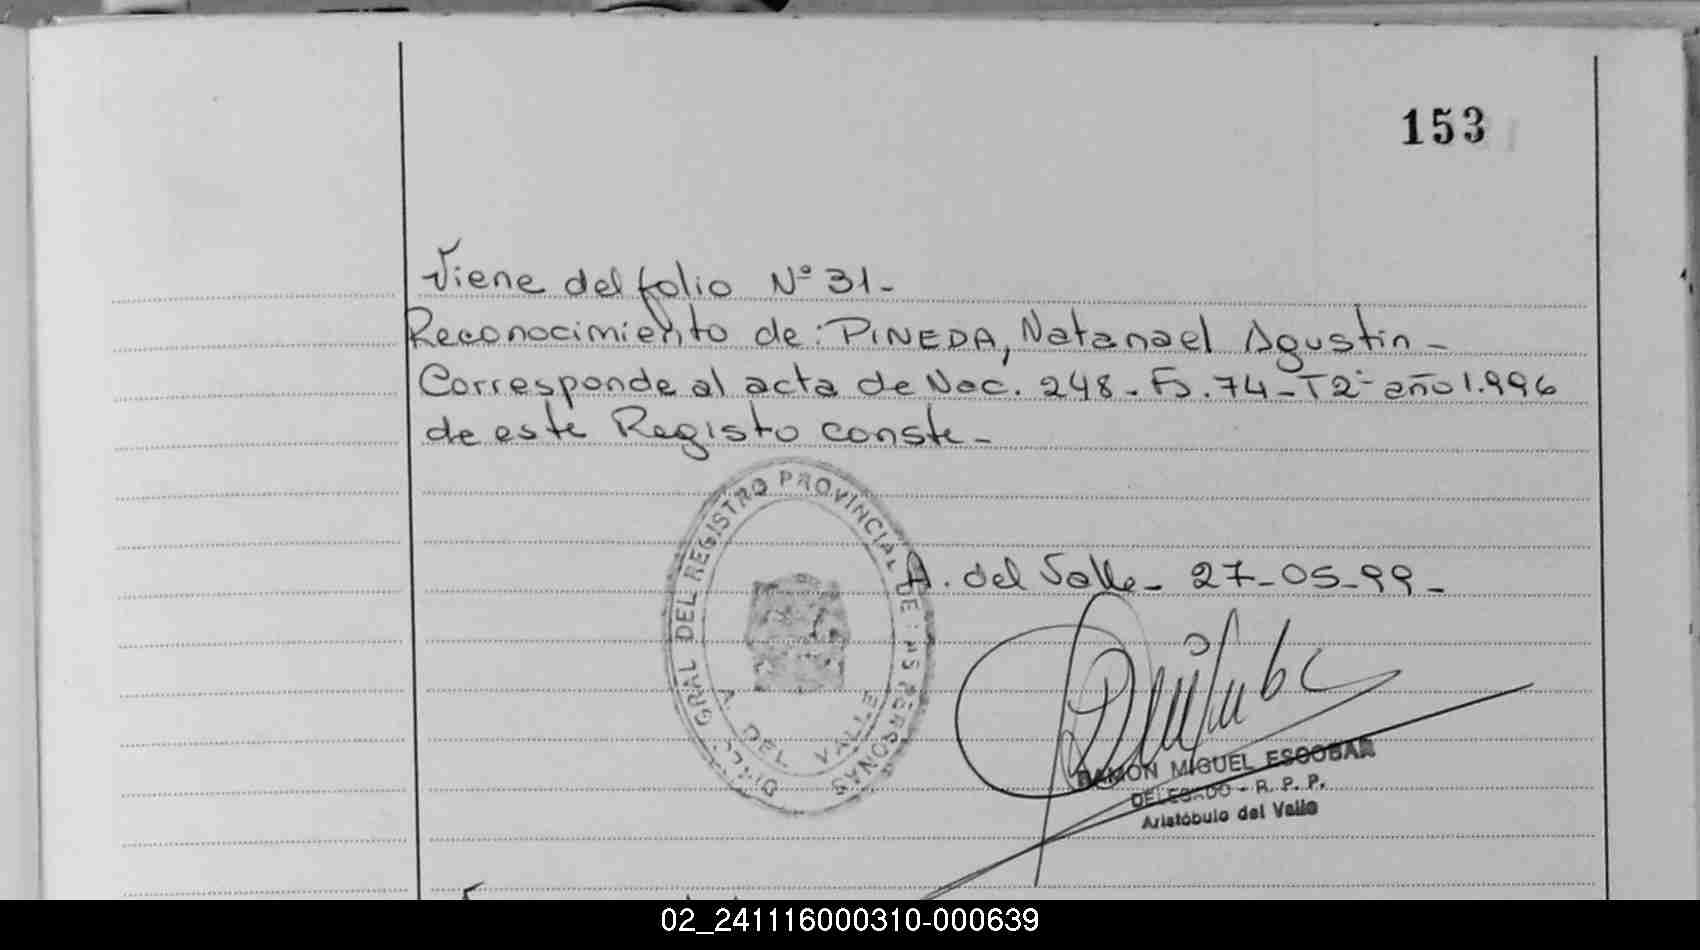 153
Viene del folio Nº 31-
Reconocimiento de: PINEDA, Natanael Agustin-
Corresponde al acta de Nac. 248- Fs. 74- T2- año 1.996
de este Registo conste-
DIREC. GRAL DEL REGISTRO PROVINCIAL DE LAS PERSONAS
A. DEL VALLE
A. del Valle- 27-05-99-
RAMON MIGUEL ESCOBAR
DELEGADO - R. P. P.
Aristóbulo del Valle
02_241116000310-000639